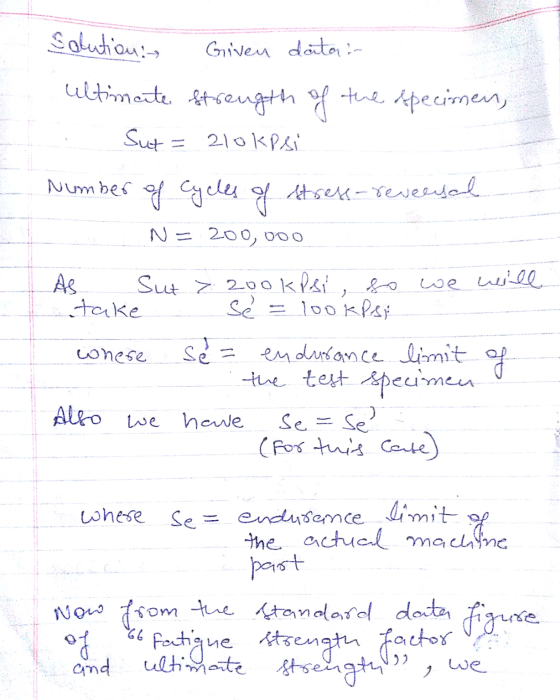 Solution:→ Given data:-
Ultimate strength of the specimen,
Sut = 210 KPSi
Number of Cycles of stress-reversal
N = 200,000
As Sut > 200 kPSi, so we will
take Se' = 100 KPSi
where Se' = endurance limit of
the test specimen
Also we have Se = Se'
(For this Case)
where Se = endurance limit of
the actual machine
part
Now from the standard data figure
of "Fatigue strength factor
and ultimate strength", we